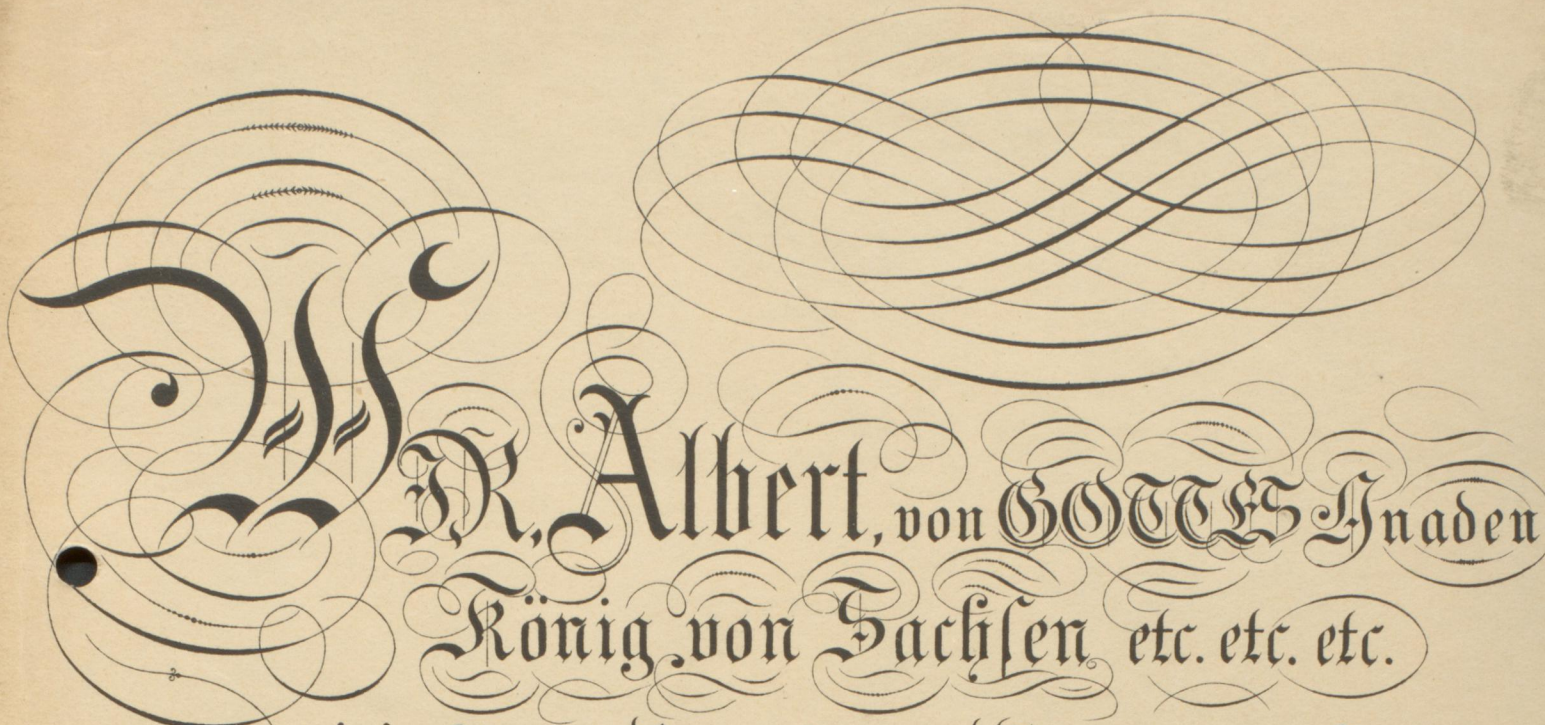 WIR, Albert, von GOTTES Gnaden
König von Sachſen etc. etc. etc.